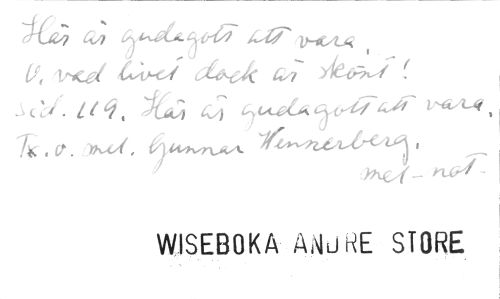 Här är gudagott att vara,
O, vad livet dock är skönt!
sid. 119. Här är gudagott att vara.
Tx. o. mel. Gunnar Wennerberg.
mel-not.
WISEBOKA ANDRE STORE